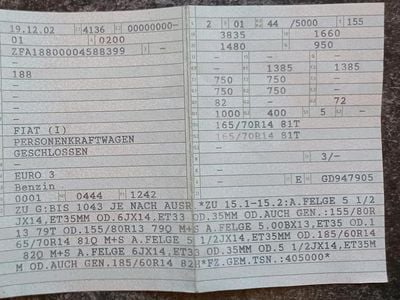 19.12.02 4136 00000000-
01 0200
ZFA18800004588399 -
-
188
-
-
-
-
FIAT (I)
PERSONENKRAFTWAGEN
GESCHLOSSEN
-
EURO 3
Benzin
0001 0444 1242
2 01 44 /5000 155
3835 1660
1480 950
-
- 1385 1385
750 750 -
750 750 -
82 - 72
1000 400 5 -
165/70R14 81T
165/70R14 81T
-
-
3/-
-
- E GD947905
ZU G:BIS 1043 JE NACH AUSR *ZU 15.1-15.2:A.FELGE 5 1/2
JX14,ET35MM OD.6JX14,ET33 OD.35MM OD.AUCH GEN.:155/80R
13 79T OD.155/80R13 79Q M+S A.FELGE 5.00BX13,ET35 OD.1
65/70R14 81Q M+S A.FELGE 5 1/2JX14,ET35MM OD.185/60R14
82Q M+S A.FELGE 6JX14,ET33 OD.35MM OD.5 1/2JX14,ET35M
M OD.AUCH GEN.185/60R14 82H*FZ.GEM.TSN.:405000*